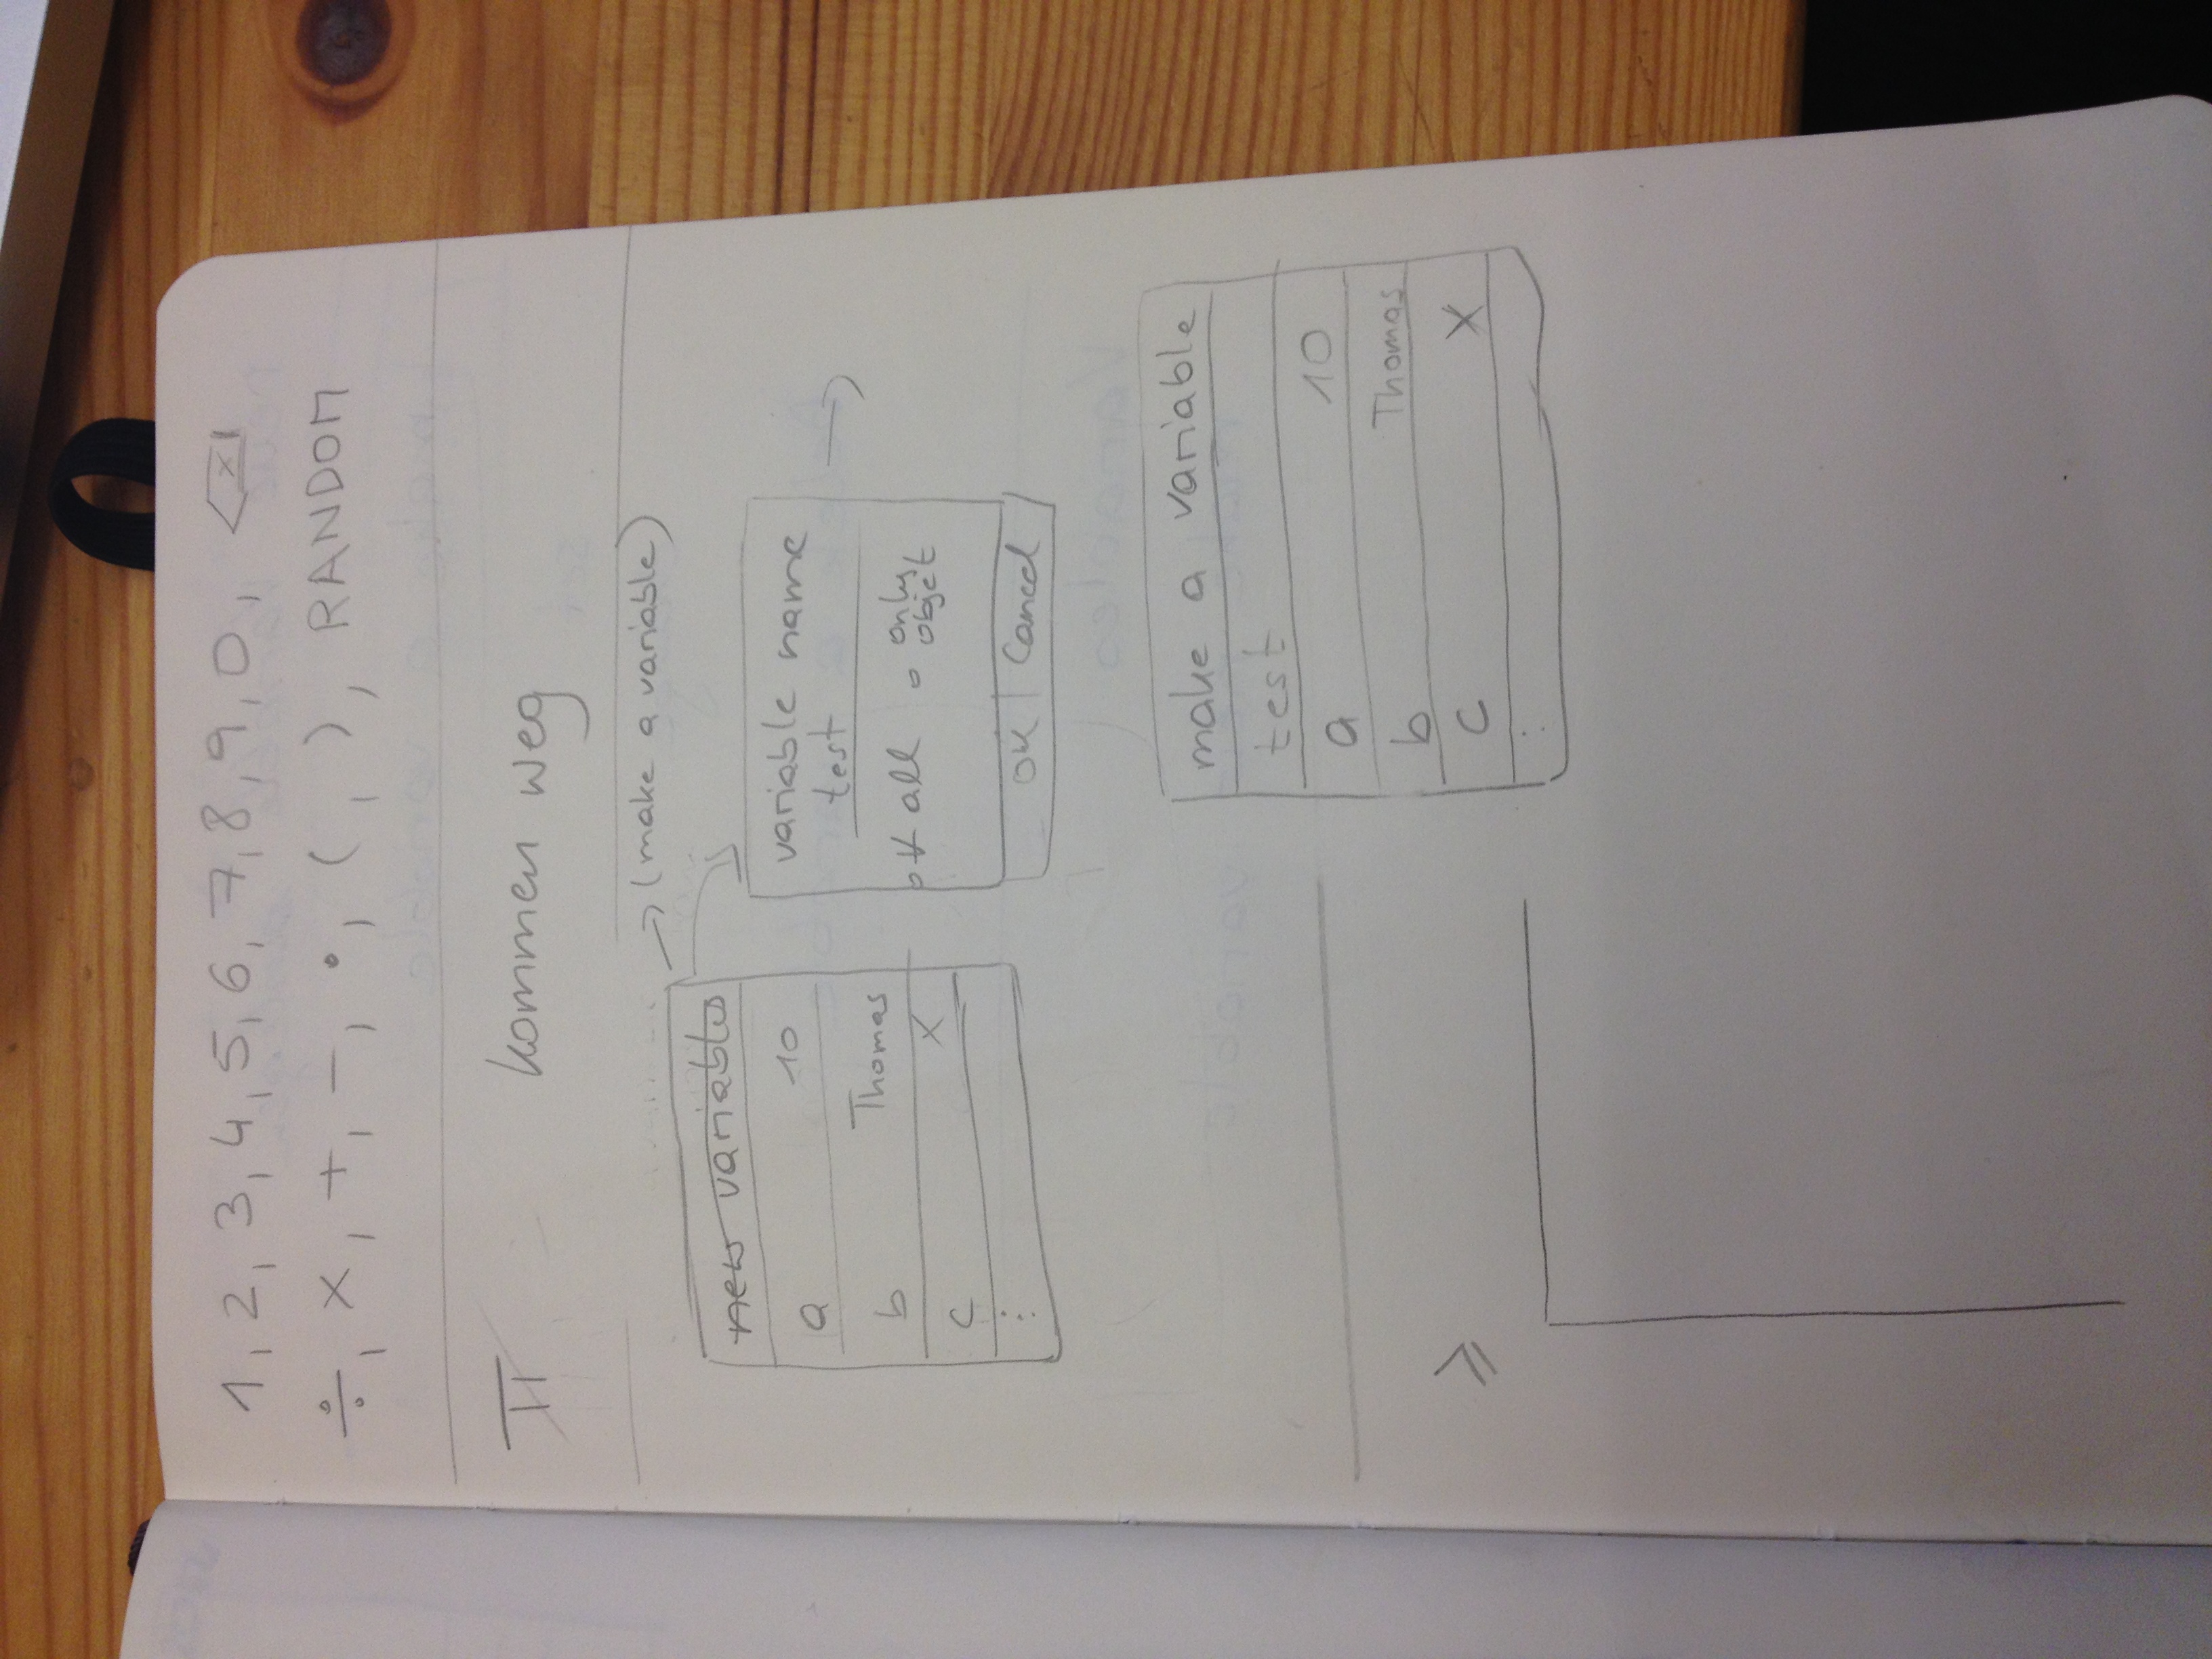 1, 2, 3, 4, 5, 6, 7, 8, 9, 0, ⌫
÷, ×, +, −, •, (, ), RANDOM
π kommen weg
→ (make a variable)
new variables
a 10
b Thomas
c X
⋮
variable name
test
all only
objet
OK | Cancel
make a variable
test
a 10
b Thomas
c X
⋮
≥